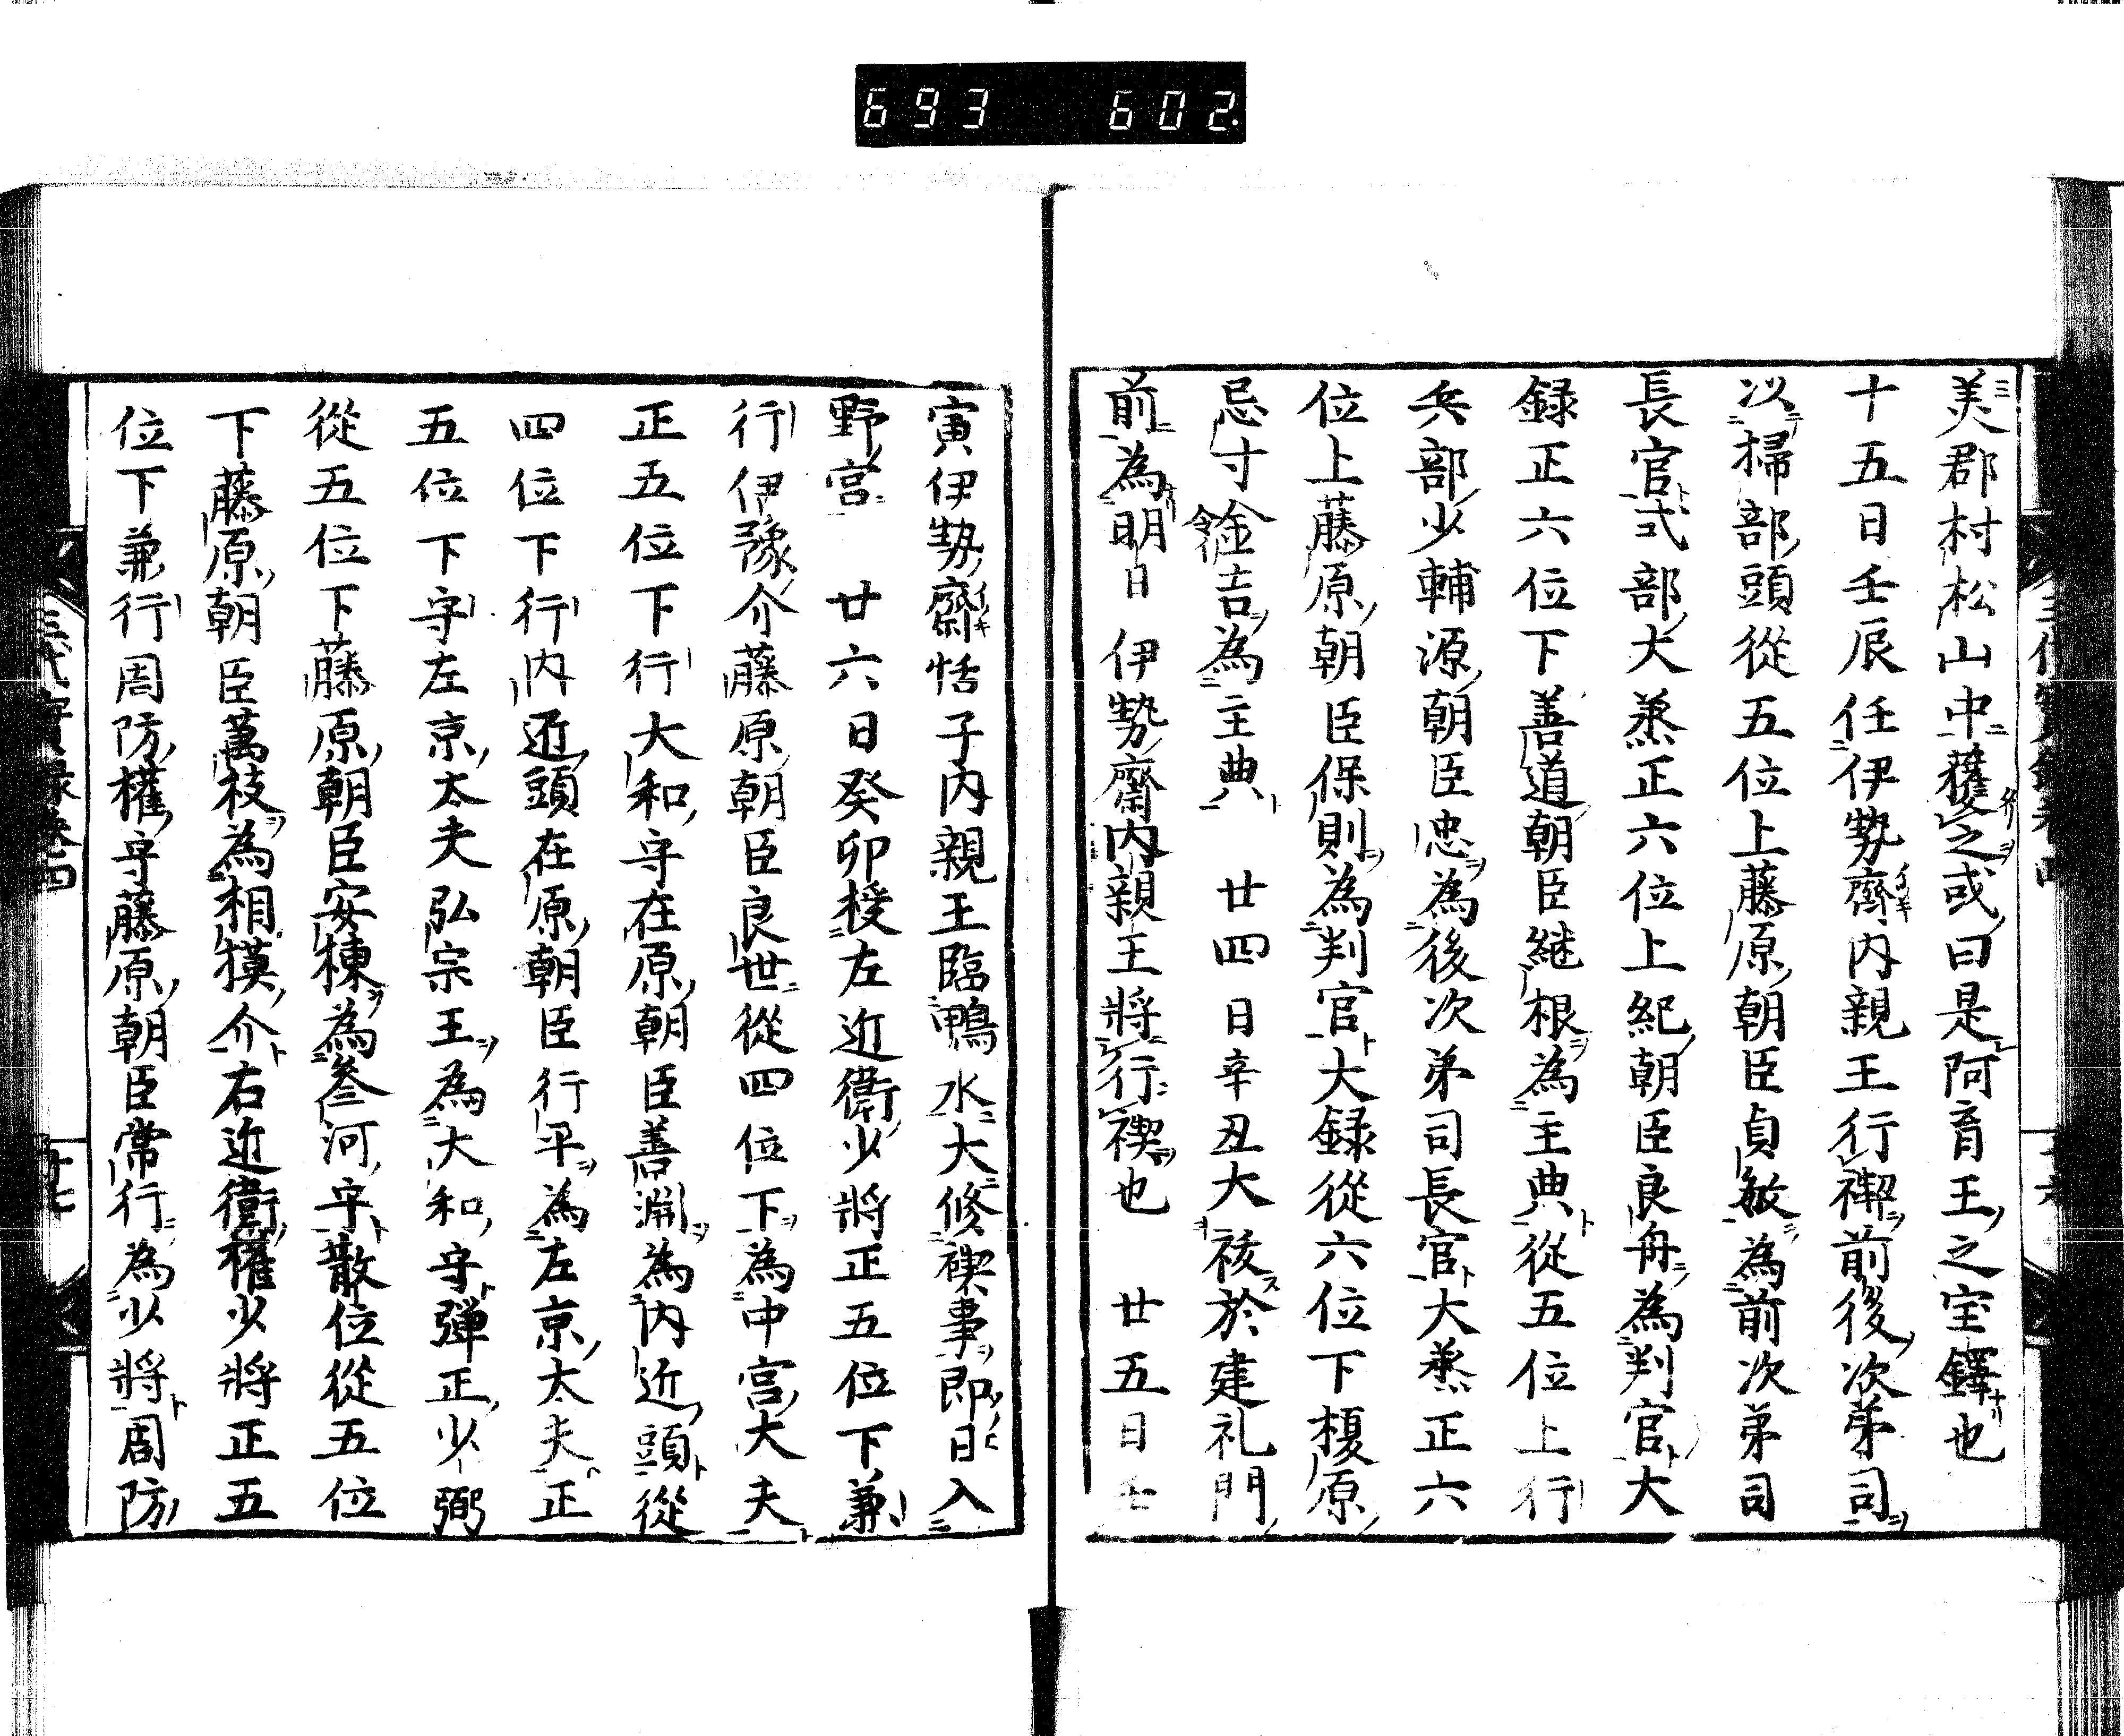 693 602
美郡村松山中獲之或曰是阿育王之宝鐸也
十五日壬辰任伊勢齋内親王行禊前後次第司
以掃部頭從五位上藤原朝臣貞敏為前次第司
長官式部大丞正六位上紀朝臣良舟為判官大
録正六位下善道朝臣継根為主典從五位上行
兵部少輔源朝臣忠為後次第司長官大丞正六
位上藤原朝臣保則為判官大録從六位下榎原
忌寸全吉為主典　廿四日辛丑大祓於建礼門
前為明日伊勢齋内親王將行禊也　廿五日壬
寅伊勢齋恬子内親王臨鴨水大修禊事即日入
野宮　廿六日癸卯授左近衛少將正五位下兼
行伊豫介藤原朝臣良世從四位下為中宮大夫
正五位下行大和守在原朝臣善淵為内近頭從
四位下行内近頭在原朝臣行平為左京太夫正
五位下守左京太夫弘宗王為大和守弾正少弼
從五位下藤原朝臣安棟為叅河守散位從五位
下藤原朝臣萬枝為相摸介右近衛權少將正五
位下兼行周防權守藤原朝臣常行為少將周防
三代實録卷四
十七